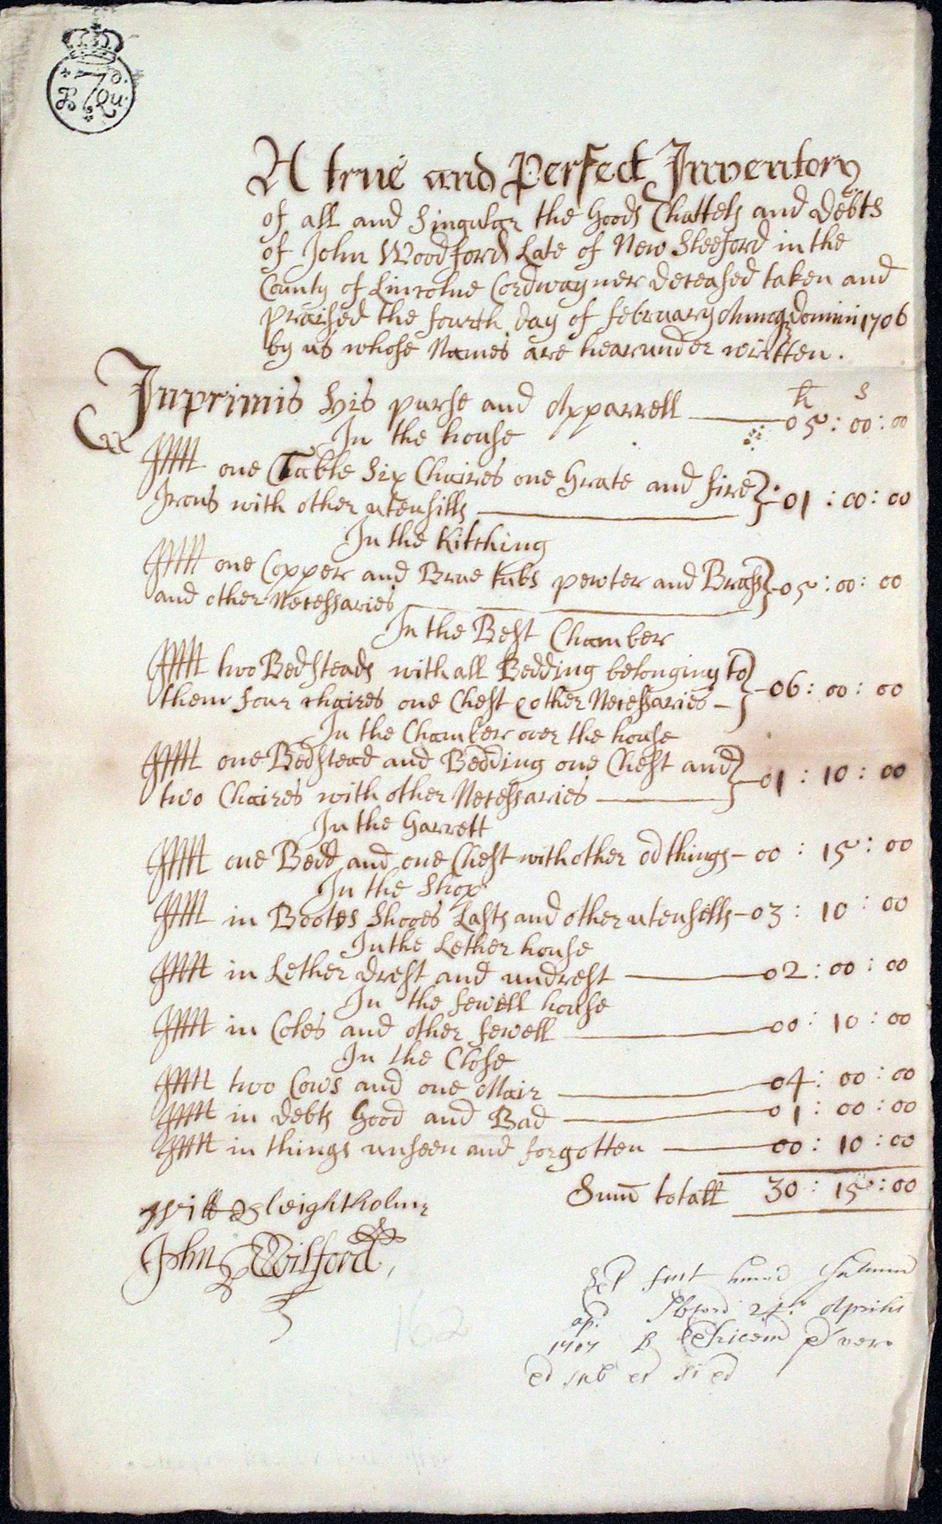 7 D.
P Qu.
A true and Perfect Inventory
of all and Singular the Goods Chattels and Debts
of John Woodford Late of New Sleeford in the
County of Lincolne Cordwayner deceased taken and
praised the fourth day of february Annoq domini 1706
by us whose Names are hearunder written.
li s
Inprimis His purse and Apparrell 05 : 00 : 00
In the house
Itt one Table Six Chaires one Grate and fire
Irons with other utensills 01 : 00 : 00
In the Kitching
Itt one Copper and Brue tubs pewter and Brass
and other Necessaries 05 : 00 : 00
In the Best Chamber
Itt two Bedsteads with all Bedding belonging to
them four chaires one Chest & other Necessaries 06 : 00 : 00
In the Chamber over the house
Itt one Bedstead and Bedding one Chest and
two Chaires with other Necessaries 01 : 10 : 00
In the Garrett
Itt one Bedd and one Chest with other od things 00 : 15 : 00
In the Shop
Itt in Bootes Shooes Lasts and other utensills 03 : 10 : 00
In the Lether house
Itt in Lether drest and undrest 02 : 00 : 00
In the fewell house
Itt in Coles and other fewell 00 : 10 : 00
In the Close
Itt two Cows and one Mair 04 : 00 : 00
Itt in debts Good and Bad 01 : 00 : 00
Itt in things unseen and forgotten 00 : 10 : 00
Sum totall 30 : 15 : 00
Will Sleightholme
John Wilford
fuit
24 Aprilis
1707
162